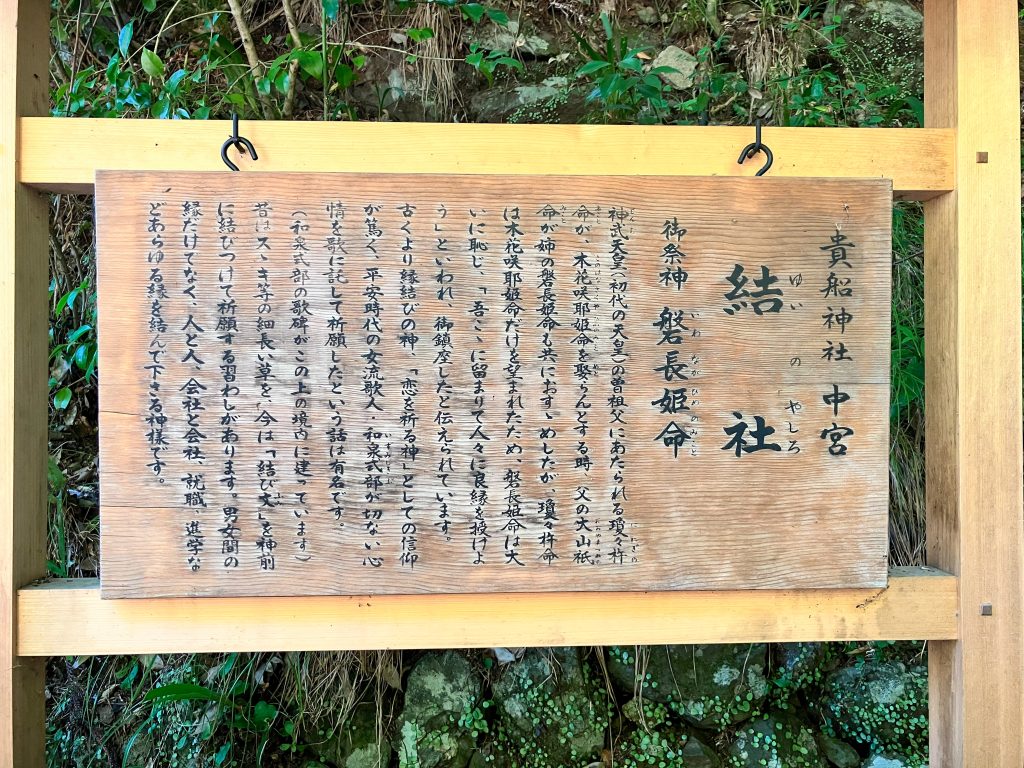 貴船神社 中宮
結社
ゆいのやしろ
御祭神 磐長姫命
いわながひめのみこと
神武天皇(初代の天皇)の曽祖父にあたられる瓊々杵
命が、木花咲耶姫命を娶らんとする時、父の大山祇
命が姉の磐長姫命も共におすゝめしたが、瓊々杵命
は木花咲耶姫命だけを望まれたため、磐長姫命は大
いに恥じ、「吾こゝに留まりて人々に良縁を授けよ
う」といわれ、御鎮座したと伝えられています。
古くより縁結びの神、「恋を祈る神」としての信仰
が篤く、平安時代の女流歌人 和泉式部が切ない心
情を歌に託して祈願したという話は有名です。
(和泉式部の歌碑がこの上の境内に建っています)
昔はスゝキ等の細長い草を、今は「結び文」を神前
に結びつけて祈願する習わしがあります。男女間の
縁だけでなく、人と人、会社と会社、就職、進学な
どあらゆる縁を結んで下さる神様です。